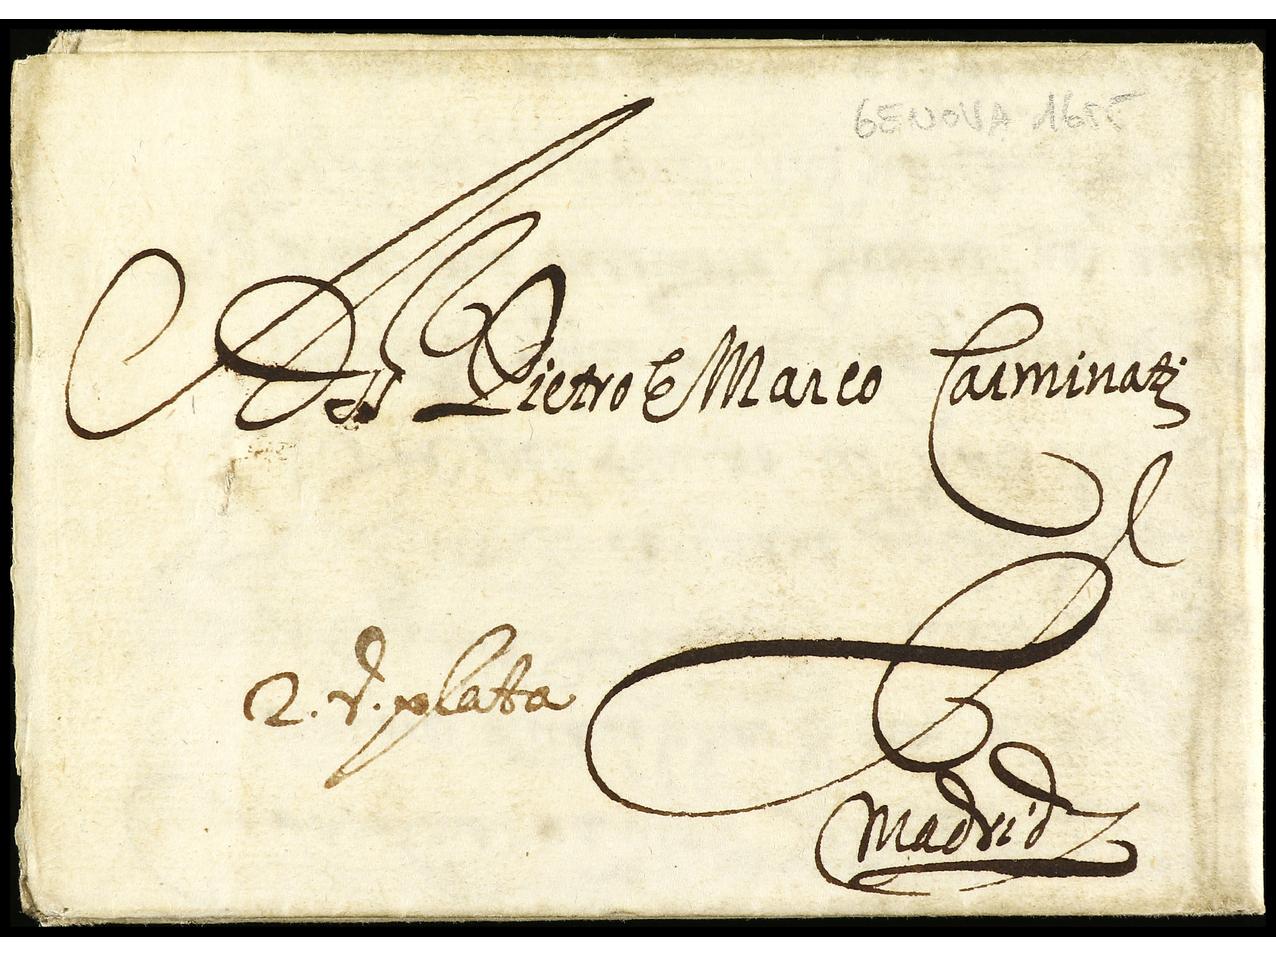 GENOVA 1655
Pietro e Marco Carminati
2. rˢ. plata
Madrid